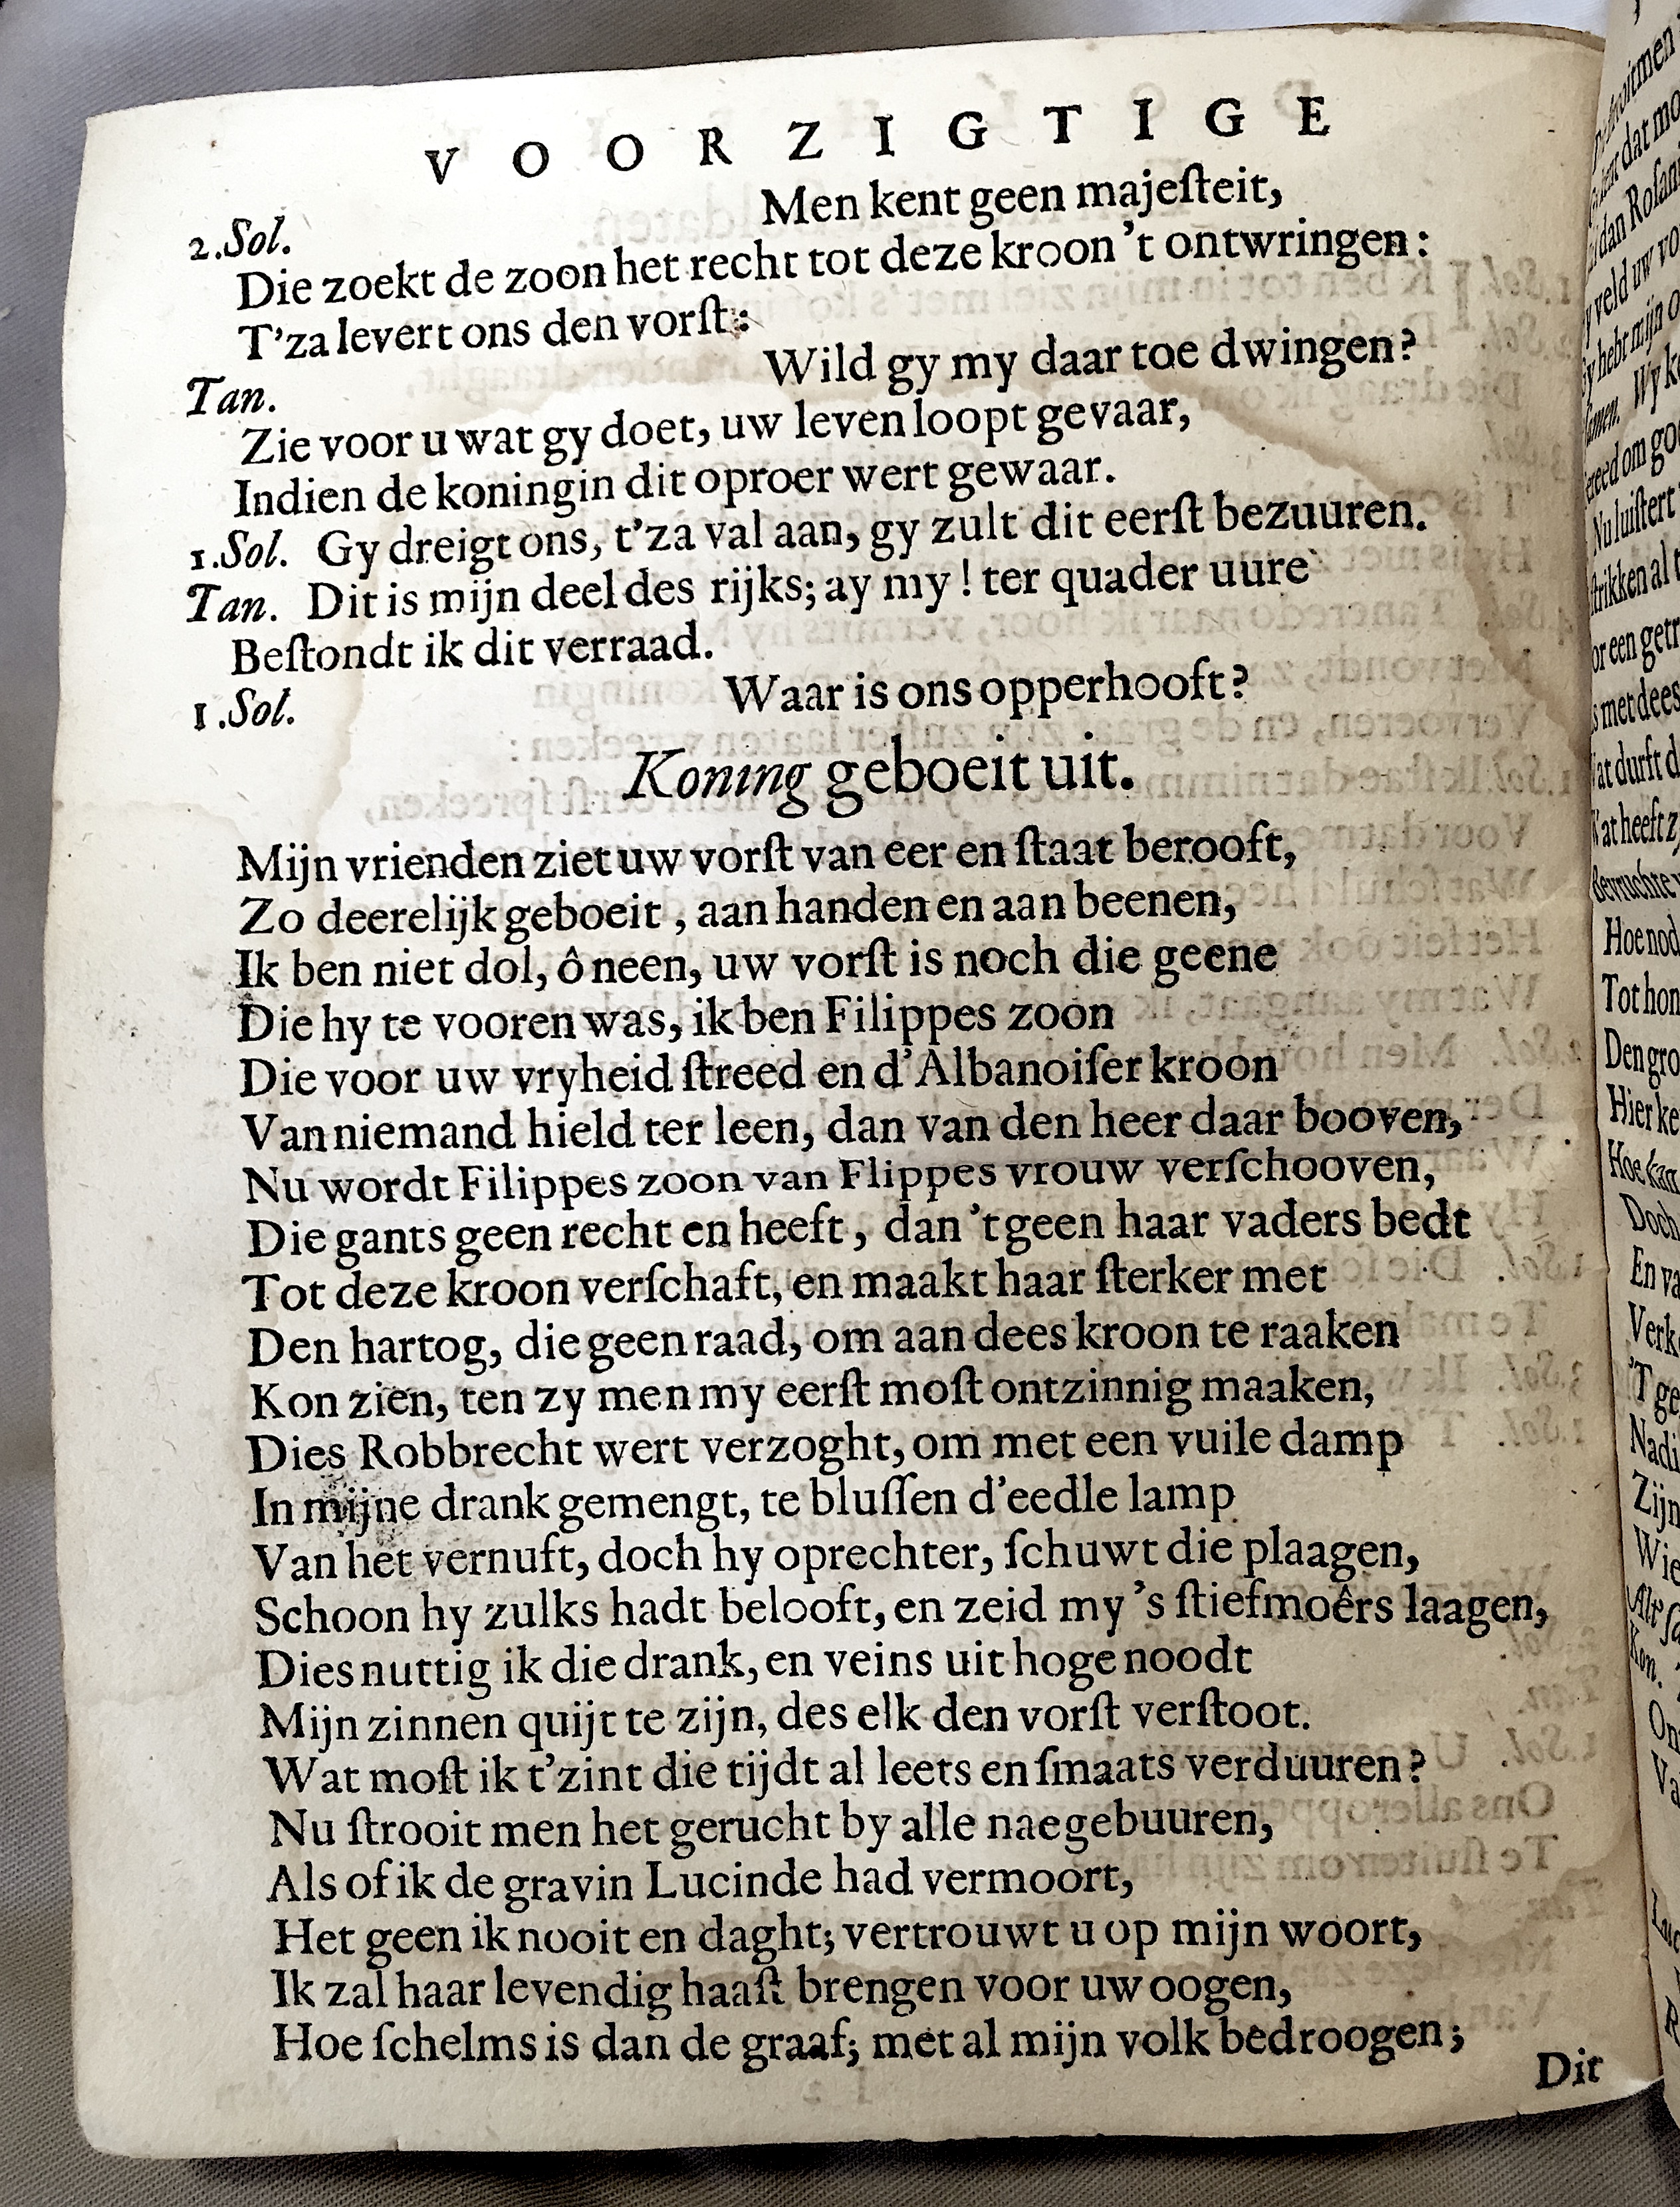 VOORZIGTIGE
2.Sol. Men kent geen majeſteit,
Die zoekt de zoon het recht tot deze kroon 't ontwringen:
T'za levert ons den vorſt:
Tan. Wild gy my daar toe dwingen?
Zie voor u wat gy doet, uw leven loopt gevaar,
Indien de koningin dit oproer wert gewaar.
1.Sol. Gy dreigt ons, t'za val aan, gy zult dit eerſt bezuuren.
Tan. Dit is mijn deel des rijks; ay my! ter quader uure
Beſtondt ik dit verraad.
1.Sol. Waar is ons opperhooft?
Koning geboeit uit.
Mijn vrienden ziet uw vorſt van eer en ſtaat berooft,
Zo deerelijk geboeit, aan handen en aan beenen,
Ik ben niet dol, ô neen, uw vorſt is noch die geene
Die hy te vooren was, ik ben Filippes zoon
Die voor uw vryheid ſtreed en d'Albanoiſer kroon
Van niemand hield ter leen, dan van den heer daar booven,
Nu wordt Filippes zoon van Flippes vrouw verſchooven,
Die gants geen recht en heeft, dan 't geen haar vaders bedt
Tot deze kroon verſchaft, en maakt haar ſterker met
Den hartog, die geen raad, om aan dees kroon te raaken
Kon zien, ten zy men my eerſt moſt ontzinnig maaken,
Dies Robbrecht wert verzoght, om met een vuile damp
In mijne drank gemengt, te bluſſen d'eedle lamp
Van het vernuft, doch hy oprechter, ſchuwt die plaagen,
Schoon hy zulks hadt belooft, en zeid my 's ſtiefmoêrs laagen,
Dies nuttig ik die drank, en veins uit hoge noodt
Mijn zinnen quijt te zijn, des elk den vorſt verſtoot.
Wat moſt ik t'zint die tijdt al leets en ſmaats verduuren?
Nu ſtrooit men het gerucht by alle naegebuuren,
Als of ik de gravin Lucinde had vermoort,
Het geen ik nooit en daght; vertrouwt u op mijn woort,
Ik zal haar levendig haaſt brengen voor uw oogen,
Hoe ſchelms is dan de graaf; met al mijn volk bedroogen;
Dit